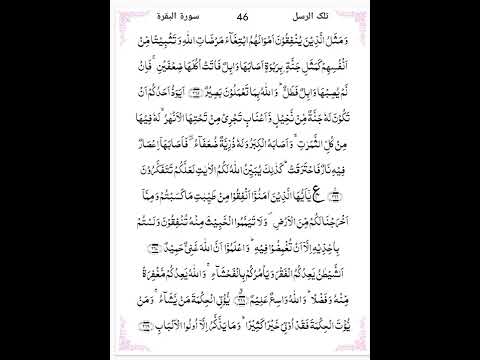 تلک الرسل 46 سورة البقرة
وَمَثَلُ الَّذِيْنَ يُنْفِقُوْنَ اَمْوَالَهُمُ ابْتِغَآءَ مَرْضَاتِ اللّٰهِ وَتَثْبِيْتًا مِّنْ
اَنْفُسِهِمْ كَمَثَلِ جَنَّةٍۭ بِرَبْوَةٍ اَصَابَهَا وَابِلٌ فَاٰتَتْ اُكُلَهَا ضِعْفَيْنِ ۚ فَاِنْ
لَّمْ يُصِبْهَا وَابِلٌ فَطَلٌّ ؕ وَاللّٰهُ بِمَا تَعْمَلُوْنَ بَصِيْرٌ ﴿۲۶۵﴾ اَيَوَدُّ اَحَدُكُمْ اَنْ
تَكُوْنَ لَهٗ جَنَّةٌ مِّنْ نَّخِيْلٍ وَّاَعْنَابٍ تَجْرِيْ مِنْ تَحْتِهَا الْاَنْهٰرُ ۙ لَهٗ فِيْهَا
مِنْ كُلِّ الثَّمَرٰتِ ۙ وَاَصَابَهُ الْكِبَرُ وَلَهٗ ذُرِّيَّةٌ ضُعَفَآءُ ۖ فَاَصَابَهَاۤ اِعْصَارٌ
فِيْهِ نَارٌ فَاحْتَرَقَتْ ؕ كَذٰلِكَ يُبَيِّنُ اللّٰهُ لَكُمُ الْاٰيٰتِ لَعَلَّكُمْ تَتَفَكَّرُوْنَ
﴿۲۶۶﴾ ع يٰۤاَيُّهَا الَّذِيْنَ اٰمَنُوْۤا اَنْفِقُوْا مِنْ طَيِّبٰتِ مَا كَسَبْتُمْ وَمِمَّاۤ
اَخْرَجْنَا لَكُمْ مِّنَ الْاَرْضِ ۪ وَلَا تَيَمَّمُوا الْخَبِيْثَ مِنْهُ تُنْفِقُوْنَ وَلَسْتُمْ
بِاٰخِذِيْهِ اِلَّاۤ اَنْ تُغْمِضُوْا فِيْهِ ؕ وَاعْلَمُوْۤا اَنَّ اللّٰهَ غَنِيٌّ حَمِيْدٌ ﴿۲۶۷﴾
اَلشَّيْطٰنُ يَعِدُكُمُ الْفَقْرَ وَيَاْمُرُكُمْ بِالْفَحْشَآءِ ۚ وَاللّٰهُ يَعِدُكُمْ مَّغْفِرَةً
مِّنْهُ وَفَضْلًا ؕ وَاللّٰهُ وَاسِعٌ عَلِيْمٌ ﴿۲۶۸﴾ يُّؤْتِي الْحِكْمَةَ مَنْ يَّشَآءُ ۚ وَمَنْ
يُّؤْتَ الْحِكْمَةَ فَقَدْ اُوْتِيَ خَيْرًا كَثِيْرًا ؕ وَمَا يَذَّكَّرُ اِلَّاۤ اُولُوا الْاَلْبَابِ ﴿۲۶۹﴾